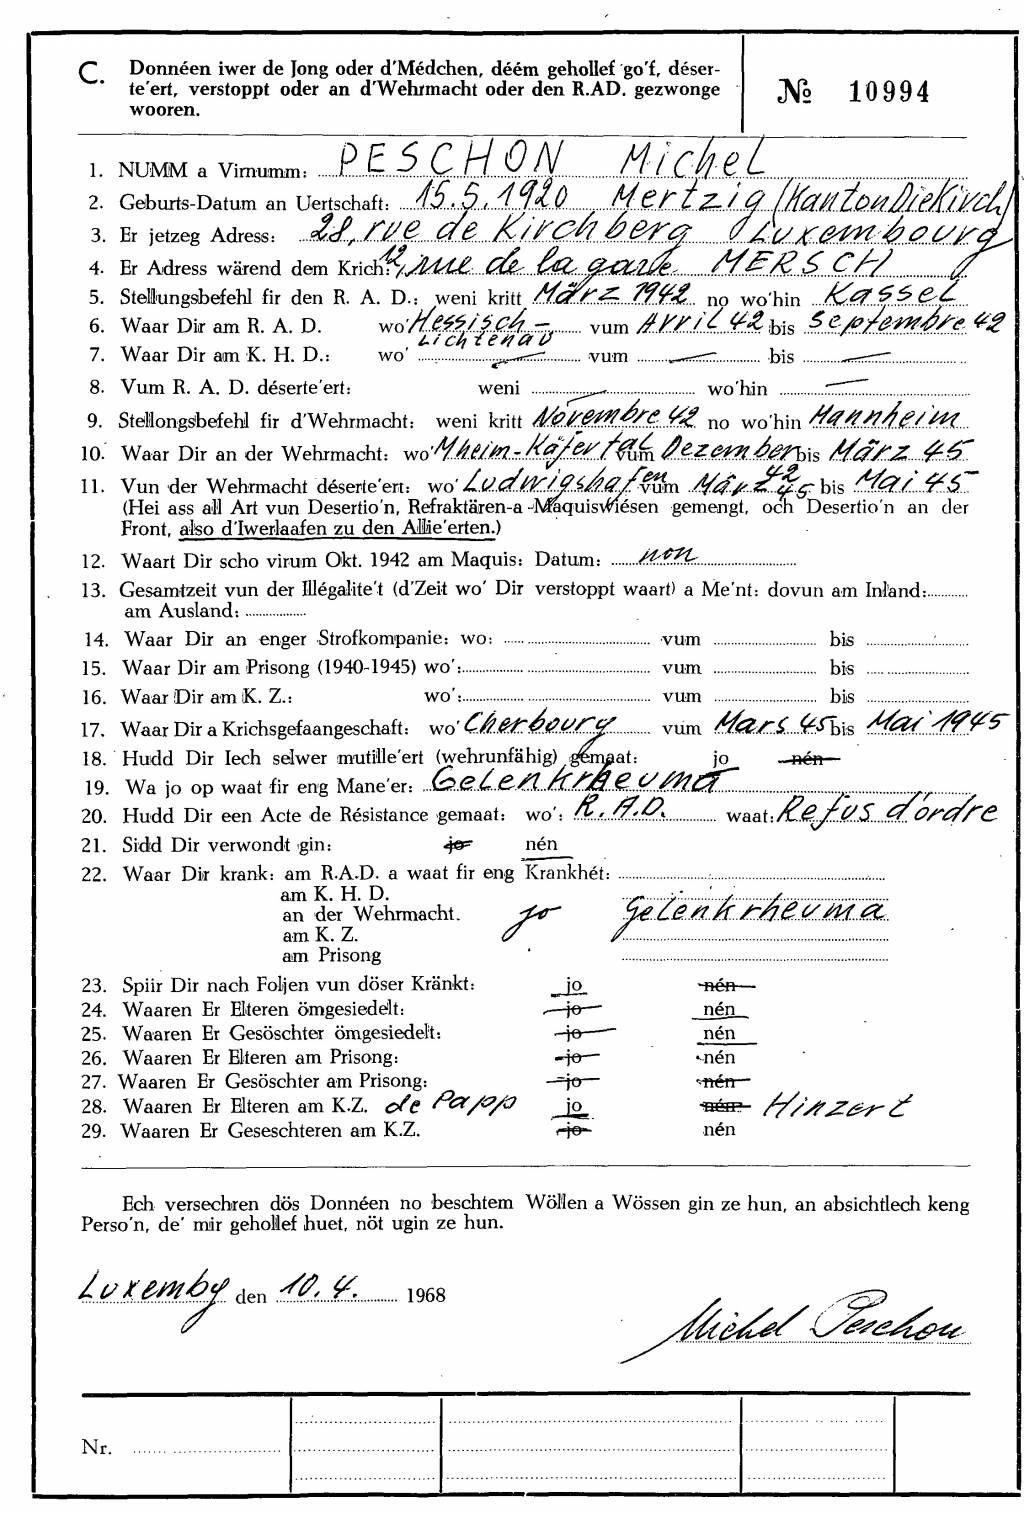 C. Donnéen iwer de Jong oder d'Médchen, déém gehollef go'f, déser-
te'ert, verstoppt oder an d'Wehrmacht oder den R.AD. gezwonge
wooren.
№ 10994
1. NUMM a Virnumm: PESCHON Michel
2. Geburts-Datum an Uertschaft: 15.5.1920 Mertzig (Kanton Diekirch)
3. Er jetzeg Adress: 28, rue de Kirchberg Luxembourg
4. Er Adress wärend dem Krich: 12, rue de la gare MERSCH
5. Stellungsbefehl fir den R. A. D.: weni kritt März 1942 no wo'hin Kassel
6. Waar Dir am R. A. D. wo' Hessisch- Lichtenau vum Avril 42 bis Septembre 42
7. Waar Dir am K. H. D.: wo' — vum — bis —
8. Vum R. A. D. déserte'ert: weni — wo'hin —
9. Stellongsbefehl fir d'Wehrmacht: weni kritt Novembre 42 no wo'hin Mannheim
10. Waar Dir an der Wehrmacht: wo' Mheim-Käfertal vum Dezember 42 bis März 45
11. Vun der Wehrmacht déserte'ert: wo' Ludwigshafen vum März 45 bis Mai 45
(Hei ass all Art vun Desertio'n, Refraktären-a -Maquiswiésen gemengt, och Desertio'n an der
Front, also d'Iwerlaafen zu den Allie'erten.)
12. Waart Dir scho virum Okt. 1942 am Maquis: Datum: non
13. Gesamtzeit vun der Illégalite't (d'Zeit wo' Dir verstoppt waart) a Me'nt: dovun am Inland:
am Ausland:
14. Waar Dir an enger Strofkompanie: wo: vum bis
15. Waar Dir am Prisong (1940-1945) wo': vum bis
16. Waar Dir am K. Z.: wo': vum bis
17. Waar Dir a Krichsgefaangeschaft: wo' Cherbourg vum Mars 45 bis Mai 1945
18. Hudd Dir Iech selwer mutille'ert (wehrunfähig) gemaat: jo nén
19. Wa jo op waat fir eng Mane'er: Gelenkrheuma
20. Hudd Dir een Acte de Résistance gemaat: wo': R.A.D. waat: Refus d'ordre
21. Sidd Dir verwondt gin: jo nén
22. Waar Dir krank: am R.A.D. a waat fir eng Krankhét:
am K. H. D.
an der Wehrmacht. jo Gelenkrheuma
am K. Z.
am Prisong
23. Spiir Dir nach Foljen vun döser Kränkt: jo nén
24. Waaren Er Elteren ömgesiedelt: jo nén
25. Waaren Er Gesöschter ömgesiedelt: jo nén
26. Waaren Er Elteren am Prisong: jo nén
27. Waaren Er Gesöschter am Prisong: jo nén
28. Waaren Er Elteren am K.Z. de Papp jo nén Hinzert
29. Waaren Er Geseschteren am K.Z. jo nén
Ech versechren dös Donnéen no beschtem Wöllen a Wössen gin ze hun, an absichtlech keng
Perso'n, de' mir gehollef huet, nöt ugin ze hun.
Luxembg den 10.4. 1968
Michel Peschon
Nr.